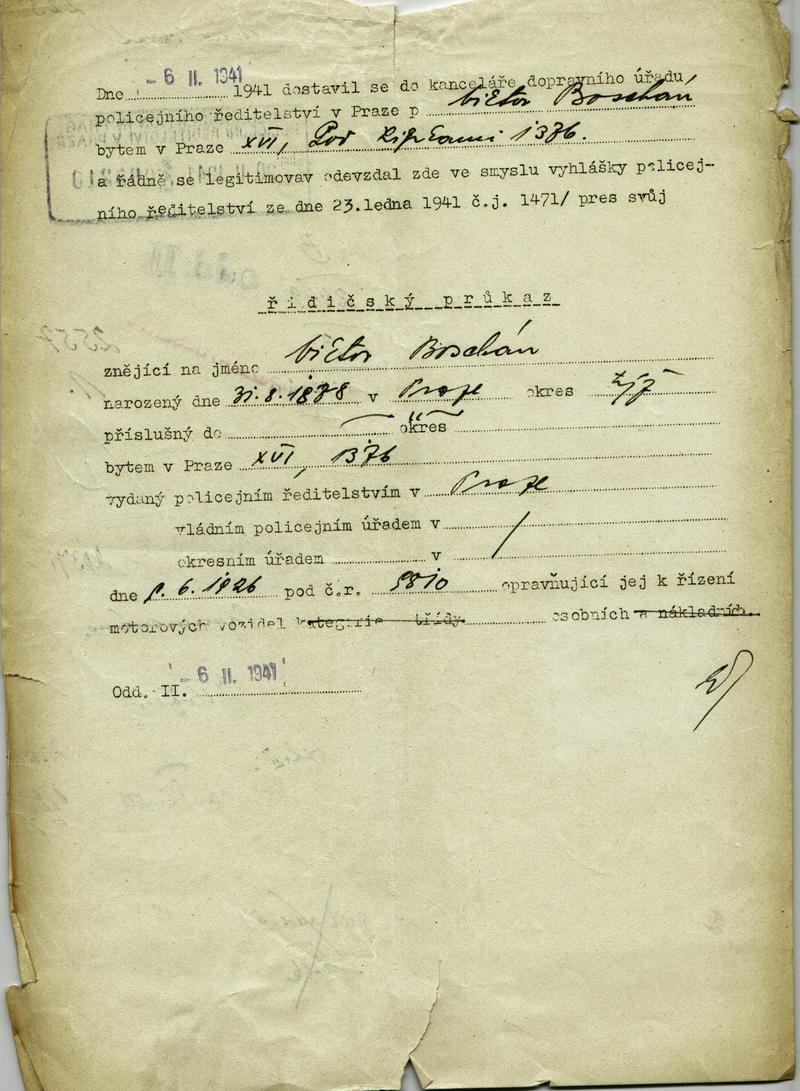 Dne - 6 II. 1941 1941 dostavil se do kanceláře dopravního úřadu
policejního ředitelství v Praze p Victor Boschán
bytem v Praze XVI, Pod 1376.
a řádně se legitimovav odevzdal zde ve smyslu vyhlášky policej-
ního ředitelství ze dne 23.ledna 1941 č.j. 1471/ pres svůj
řidičský průkaz
znějící na jméno Victor Boschán
narozený dne 31.8.1878 v Praze okres
příslušný do okres
bytem v Praze XVI, 1376
vydaný policejním ředitelstvím v Praze
vládním policejním úřadem v
okresním úřadem v
dne .6.1926 pod č.ř. opravňující jej k řízení
motorových vozidel kategorie třídy osobních a nákladních.
Odd. II. - 6 II. 1941